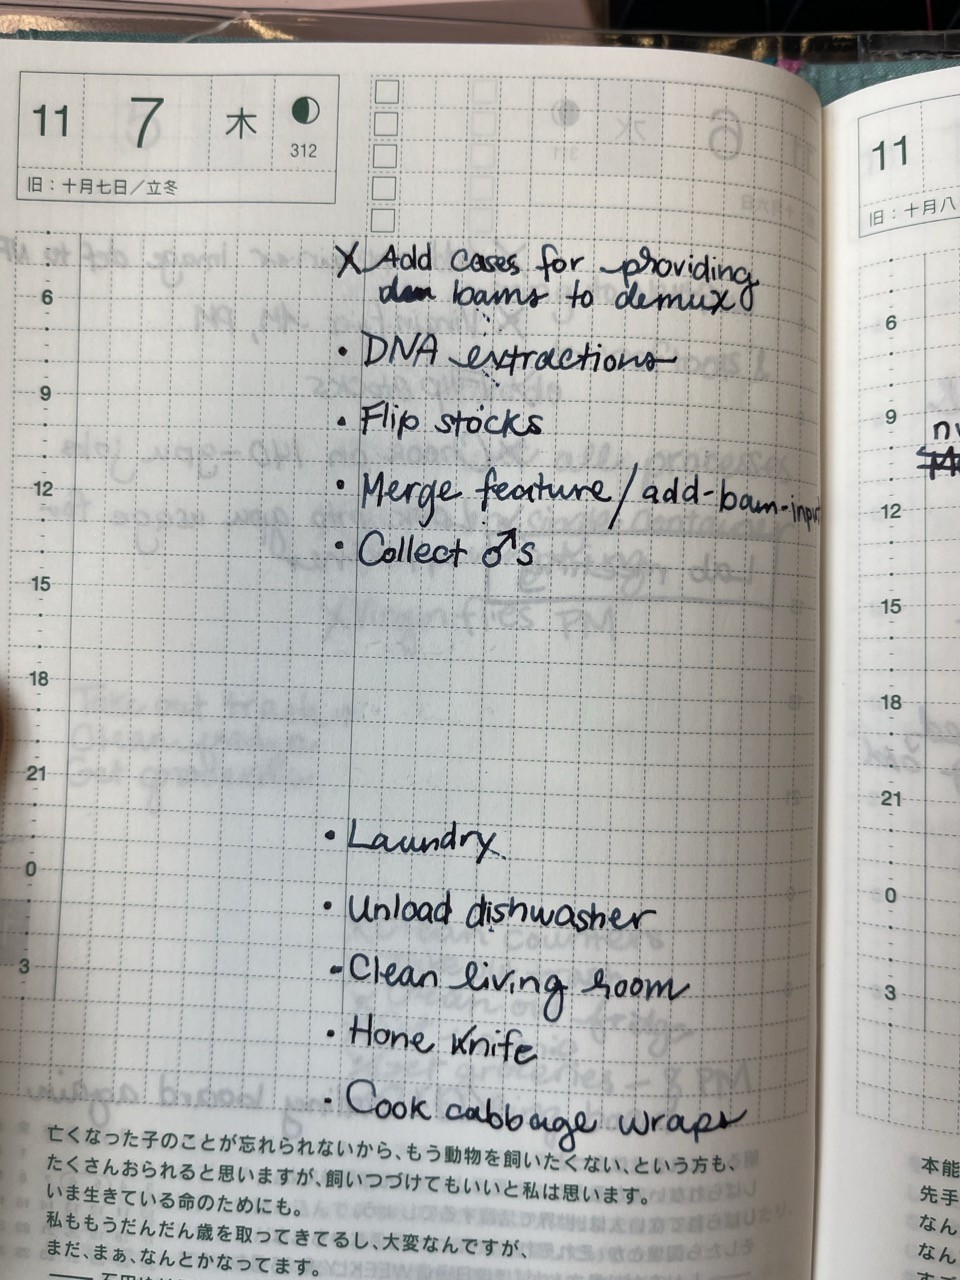 11 7 木
312
旧：十月七日／立冬
X Add cases for providing
bams to demux
• DNA extractions
• Flip stocks
• Merge feature/add-bam-input
• Collect ♂s
• Laundry
• Unload dishwasher
- Clean living room
• Hone Knife
• Cook cabbage wraps
6
9
12
15
18
21
0
3
亡くなった子のことが忘れられないから、もう動物を飼いたくない、という方も、
たくさんおられると思いますが、飼いつづけてもいいと私は思います。
いま生きている命のためにも。
私ももうだんだん歳を取ってきてるし、大変なんですが、
まだ、まぁ、なんとかなってます。
11
旧：十月八
6
9
12
15
18
21
0
3
本能
先手
なん
なん